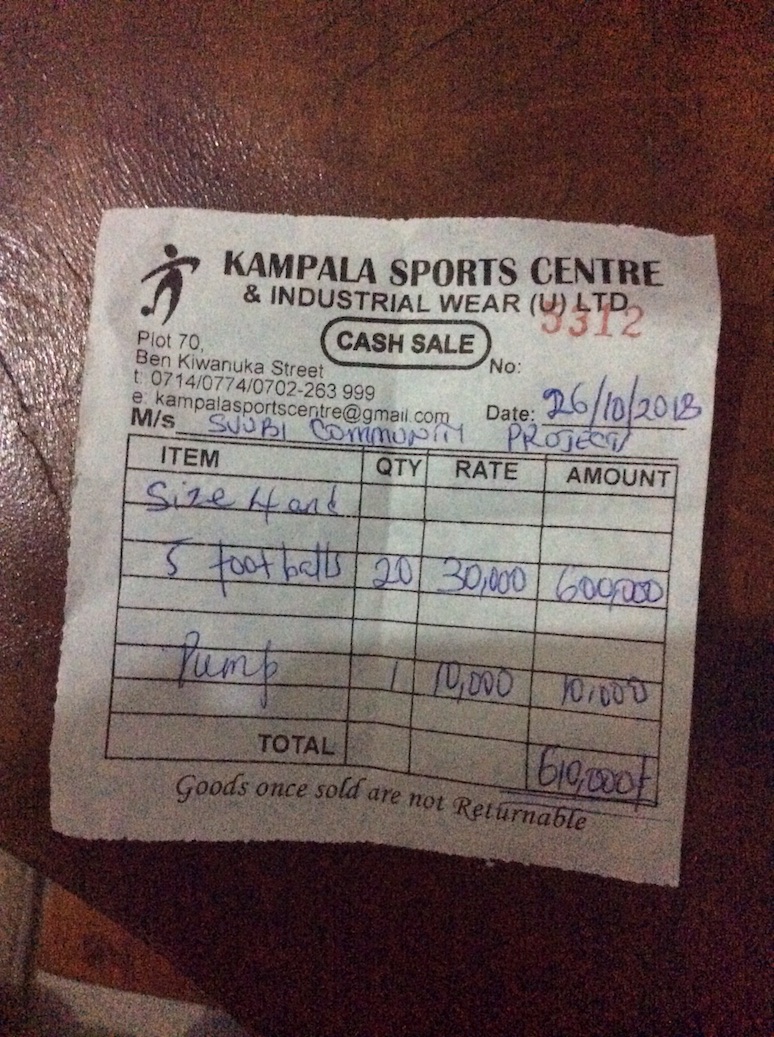 KAMPALA SPORTS CENTRE
& INDUSTRIAL WEAR (U) LTD
3312
CASH SALE
No:
Plot 70,
Ben Kiwanuka Street
t: 0714/0774/0702-263 999
e: kampalasportscentre@gmail.com
Date: 26/10/2018
M/s SUUBI COMMUNITY PROJECT
ITEM QTY RATE AMOUNT
Size 4 and
5 footballs 20 30,000 600,000
Pump 1 10,000 10,000
TOTAL 610,000/
Goods once sold are not Returnable